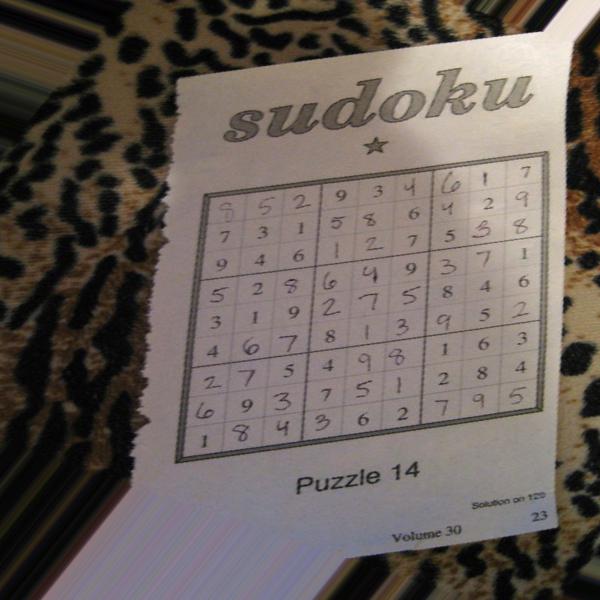 sudoku
8 5 2 9 3 4 6 1 7
7 3 1 5 8 6 4 2 9
9 4 6 1 2 7 5 3 8
5 2 8 6 4 9 3 7 1
3 1 9 2 7 5 8 4 6
4 6 7 8 1 3 9 5 2
2 7 5 4 9 8 1 6 3
6 9 3 7 5 1 2 8 4
1 8 4 3 6 2 7 9 5
Puzzle 14
Solution on 129
Volume 30 23